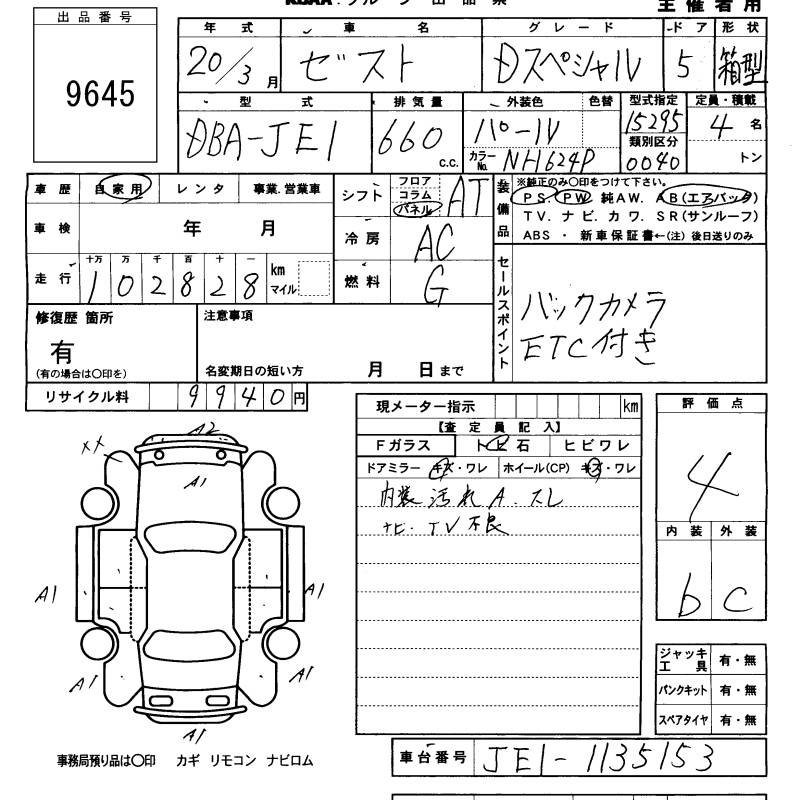 出品番号
9645
主催者用
年式 車名 グレード ドア 形状
20/3月 ゼスト Dスペシャル 5 箱型
型式 排気量 外装色 色替 型式指定 定員・積載
DBA-JE1 660c.c. パール 15295 4名
カラーNo. NH624P 類別区分 0040 トン
車歴 自家用 レンタ 事業.営業車
車検 年 月
走行 十万 万 千 百 十 一
102828 km マイル
シフト フロア コラム パネル AT
冷房 AC
燃料 G
装備品
※純正のみ〇印をつけて下さい。
PS. PW. 純AW. AB(エアバック)
TV. ナビ. カワ. SR(サンルーフ)
ABS・新車保証書←(注)後日送りのみ
セールスポイント
バックカメラ
ETC付き
修復歴 箇所
有
(有の場合は〇印を)
注意事項
名変期日の短い方 月 日まで
リサイクル料 9940円
現メーター指示 km
【査定員記入】
Fガラス トビ石 ヒビワレ
ドアミラー キズ・ワレ ホイール(CP) キズ・ワレ
内装汚れA.スレ
ナビ.TV不良
評価点
4
内装 外装
b c
××
A2
A1
A1
A1
A1
A1
A1
ジャッキ工具 有・無
パンクキット 有・無
スペアタイヤ 有・無
事務局預り品は〇印 カギ リモコン ナビロム
車台番号 JE1-1135153